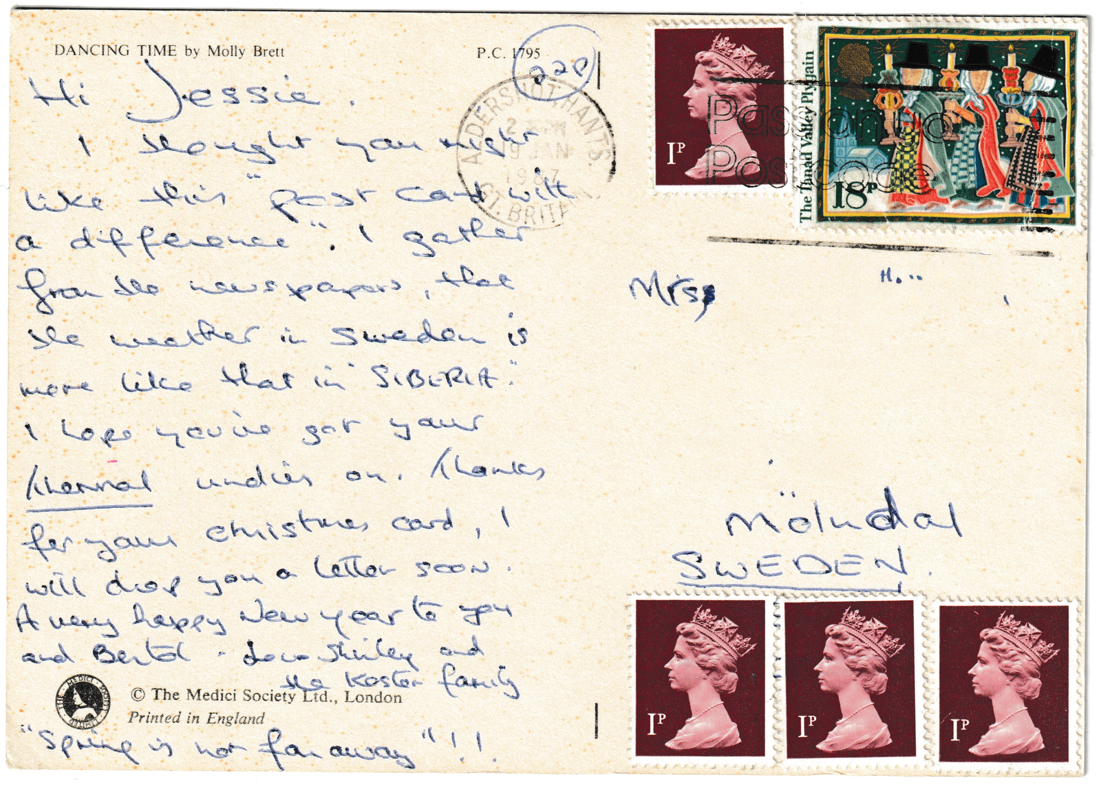 DANCING TIME by Molly Brett
P.C. 1795
22P
Hi Jessie.
I thought you might
like this "post card with
a difference". I gather
from the newspapers, that
the weather in Sweden is
more like that in "SIBERIA."
I hope you've got your
thermal undies on. Thanks
for your christmas card, I
will drop you a letter soon.
A very happy New year to you
and Bertol - Love Shirley and
the Koster family
"Spring is not far away"!!
© The Medici Society Ltd., London
Printed in England
THE MEDICI SOCIETY LIMITED
ALDERSHOT HANTS
19 JAN
GT. BRITAIN
Pass on
Postcode
1P
The Tanad Valley Plygain
18P
Mrs
Mölndal
SWEDEN.
1P
1P
1P